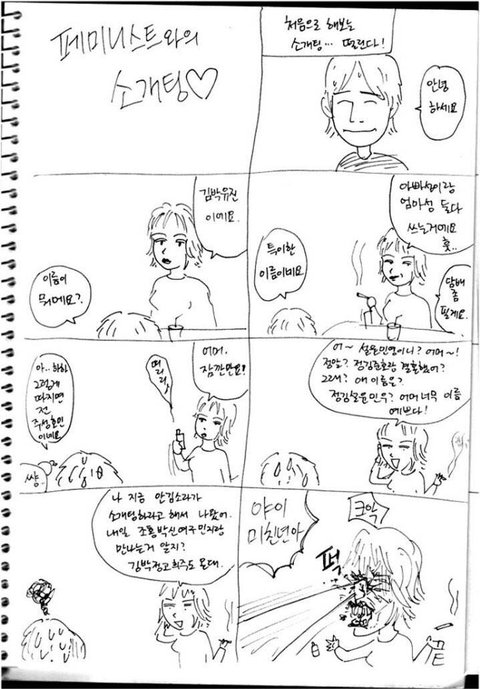 페미니스트와의
소개팅♡
처음으로 해보는
소개팅... 떨린다!
안녕
하세요
김박유진
이에요.
이름이
뭐에요?
아빠성이랑
엄마성 둘다
쓰는거에요
훗..
특이한
이름이네요
담배
좀
필게요.
어머.
잠깐만요!
띠리리
아.. 하하
그렇게
따지면
전
주성호인
이네요
쌍
어~ 설윤민영이니? 어머~!
정말? 정김준호랑 결혼했어?
그래? 애 이름은?
정김설윤민우? 어머 너무 이름
예쁘다!
나 지금 안김소라가
소개팅하라고 해서 나왔어.
내일 조황박신여구민지랑
만나는거 알지?
김박정고희주도 온대.
야이
미친년아
크악
퍽
끝